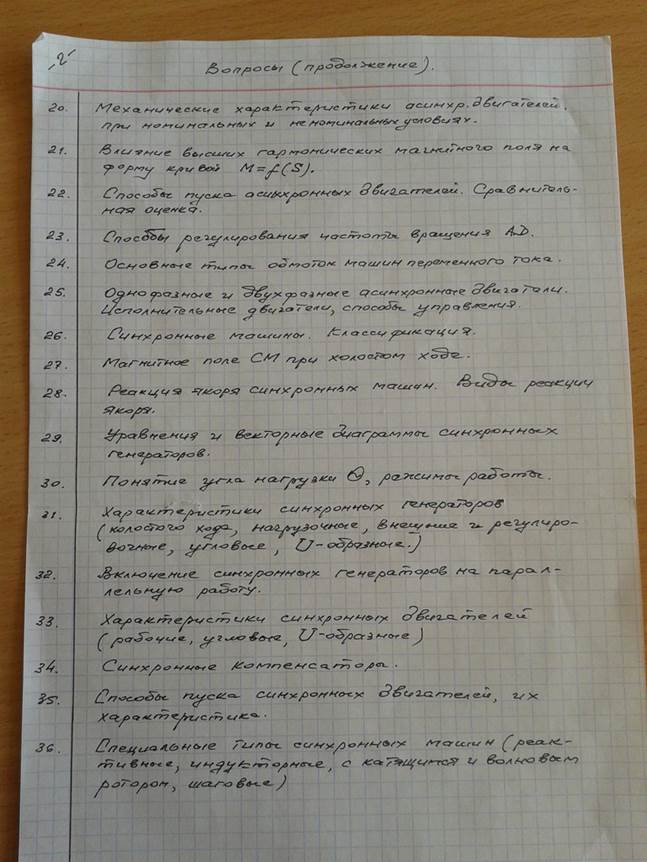 "2"
Вопросы (продолжение).
20. Механические характеристики асинхр. двигателей.
при номинальных и неноминальных условиях.
21. Влияние высших гармонических магнитного поля на
форму кривой M=f(S).
22. Способы пуска асинхронных двигателей. Сравнитель-
ная оценка.
23. Способы регулирования частоты вращения АД.
24. Основные типы обмоток машин переменного тока.
25. Однофазные и двухфазные асинхронные двигатели.
Исполнительные двигатели, способы управления.
26. Синхронные машины. Классификация.
27. Магнитное поле СМ при холостом ходе.
28. Реакция якоря синхронных машин. Виды реакции
якоря.
29. Уравнения и векторные диаграммы синхронных
генераторов.
30. Понятие угла нагрузки Θ, режимы работы.
31. Характеристики синхронных генераторов
(холостого хода, нагрузочные, внешние и регулиро-
вочные, угловые, U-образные.)
32. Включение синхронных генераторов на парал-
лельную работу.
33. Характеристики синхронных двигателей
(рабочие, угловые, U-образные)
34. Синхронные компенсаторы.
35. Способы пуска синхронных двигателей, их
характеристика.
36. Специальные типы синхронных машин (реак-
тивные, индукторные, с катящимся и волновым
ротором, шаговые)